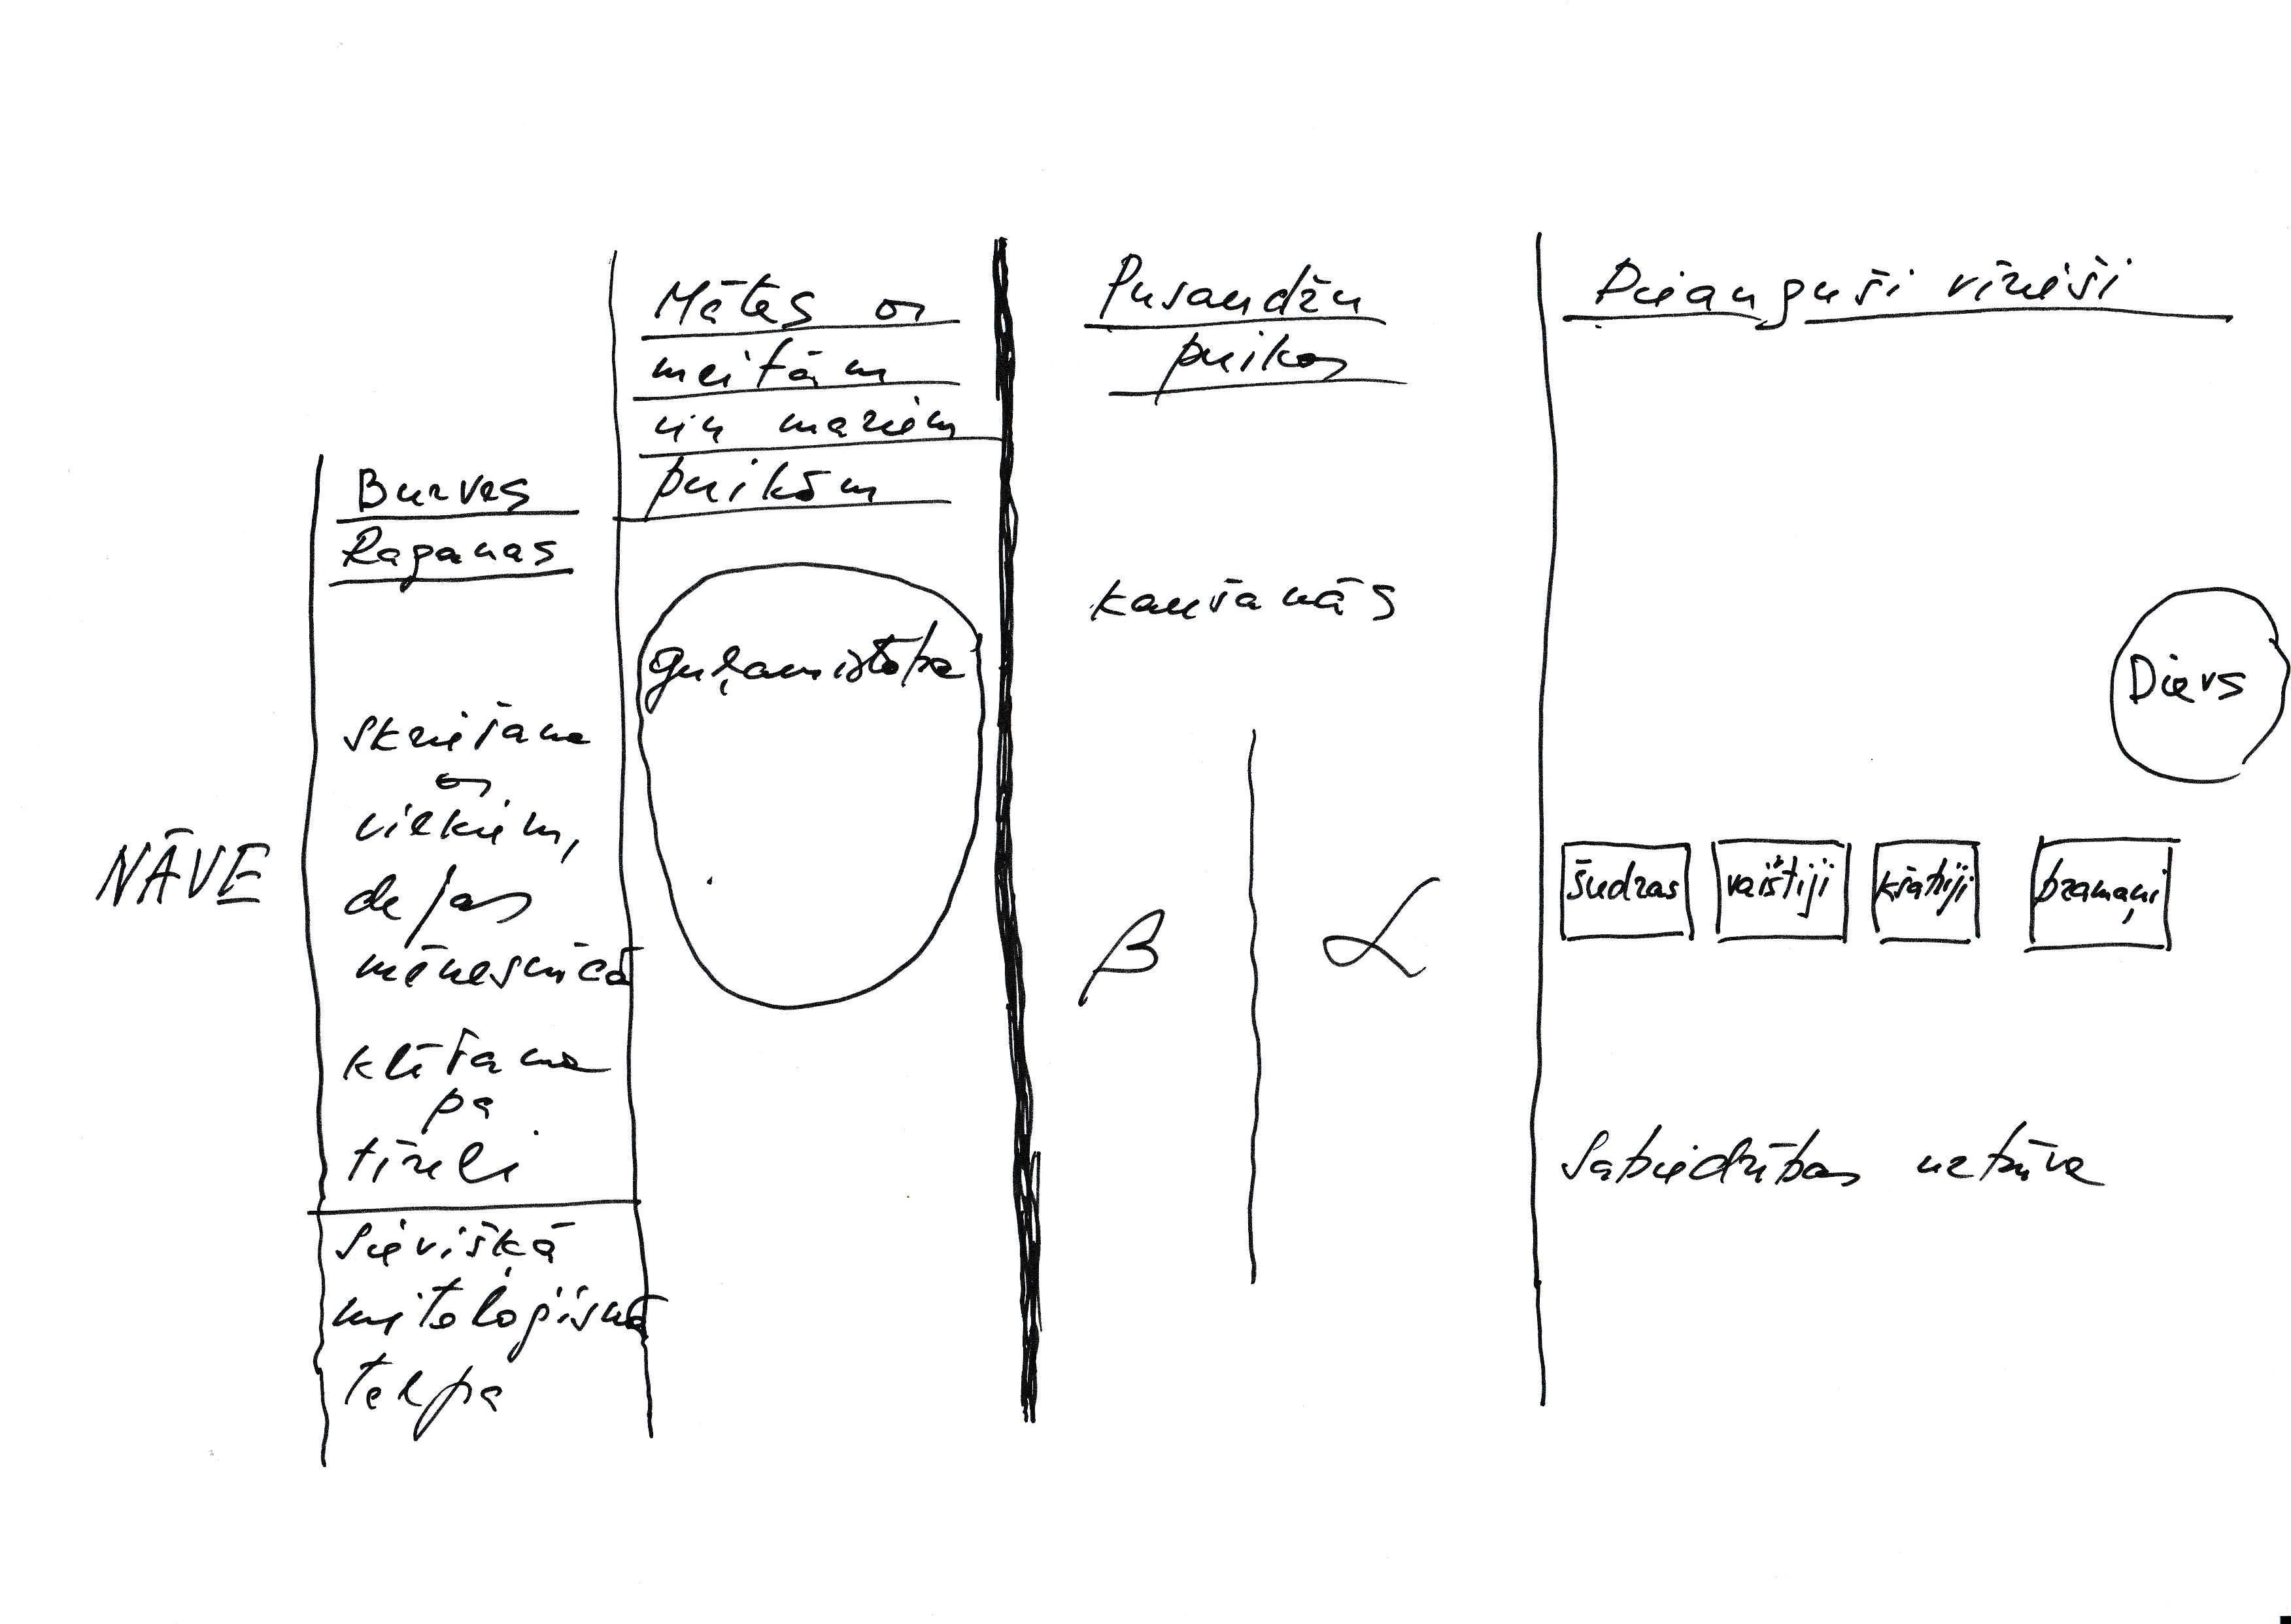 NĀVE
Burves
Raganas
skriešana
ar
vilkiem,
dejas
mēnesnīcā
klīšana
pa
tīreli
Sievišķā
mitoloģiskā
telpa
Mātes ar
meitām
un maziem
puikām
guļamistaba
Pusaudžu
puikas
kaušanās
β α
Pieauguši vīrieši
Dievs
šudras vaišiji kšatriji bramaņi
Sabiedrības uzbūve